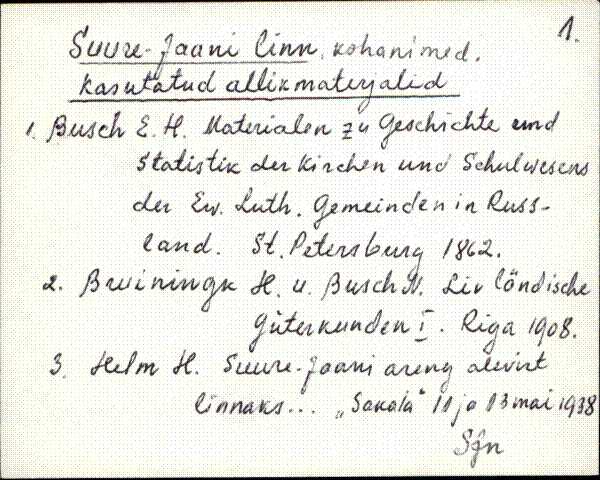 1.
Suure-Jaani linn, kohanimed.
Kasutatud allikmaterjalid
1. Busch E. H. Materialen zu Geschichte und
Statistik der Kirchen und Schulwesens
der Ew. Luth. Gemeinden in Russ-
land. St. Petersburg 1862.
2. Bruiningk H. u. Busch N. Livländische
Güterkunden I. Riga 1908.
3. Helm H. Suure-Jaani areng alevist
linnaks... „Sakala" 11 ja 13 mai 1938
SJn